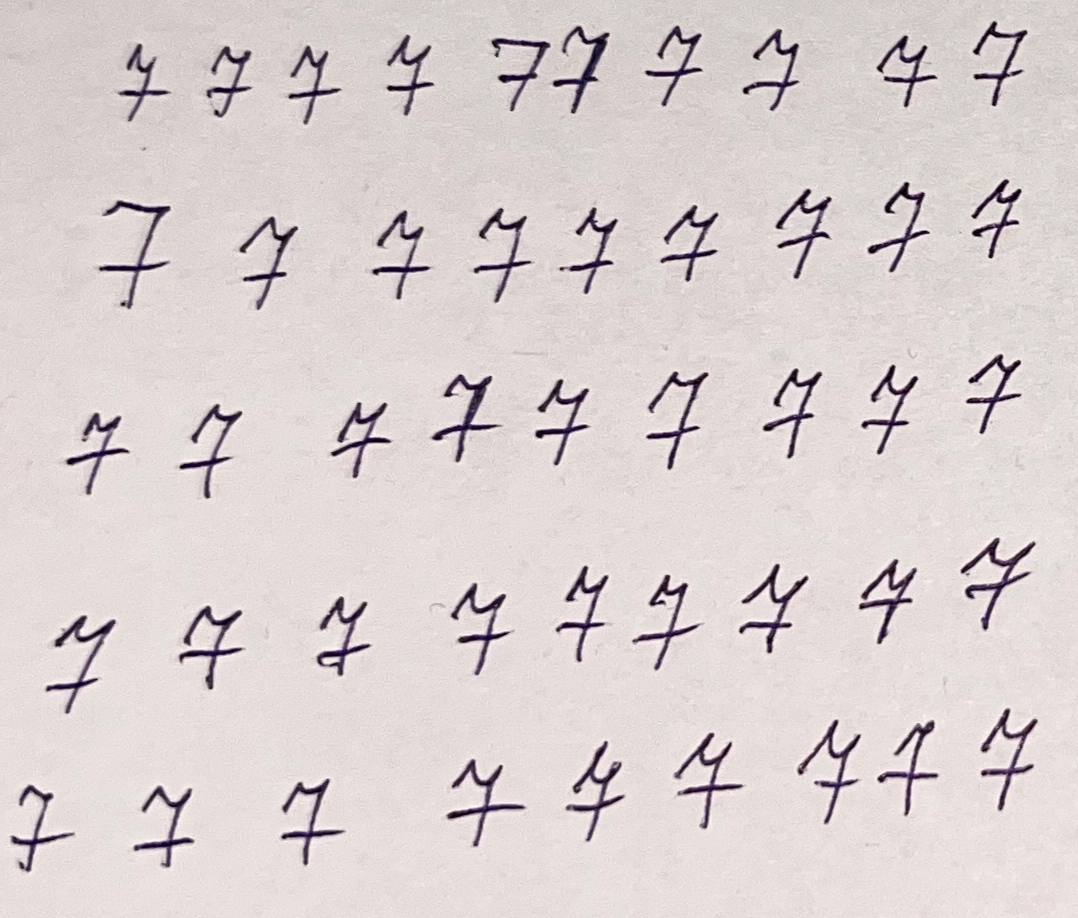 7 7 7 7 7 7 7 7 7 7
7 7 7 7 7 7 7 7 7
7 7 7 7 7 7 7 7 7
7 7 7 7 7 7 7 7 7
7 7 7 7 7 7 7 7 7